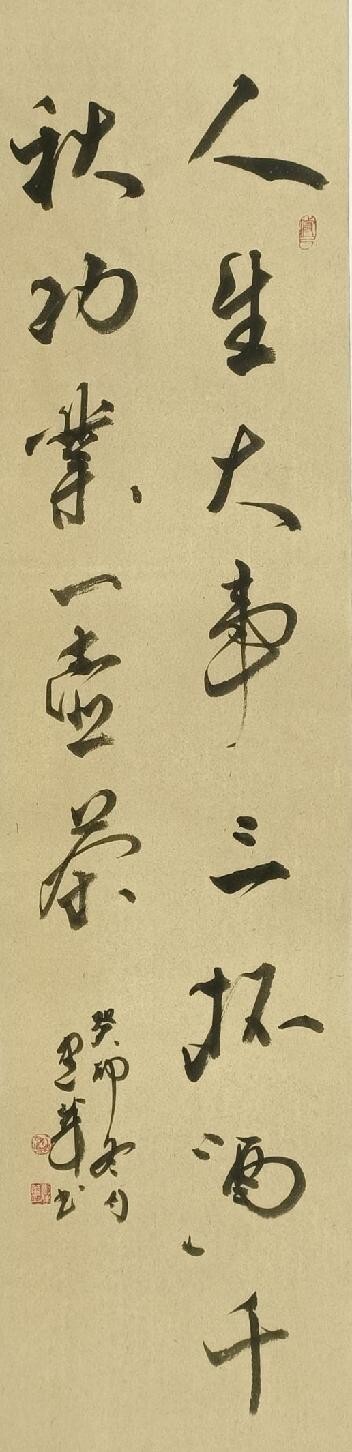 人生大事三杯酒千
秋功業一壺茶
癸卯冬月
書